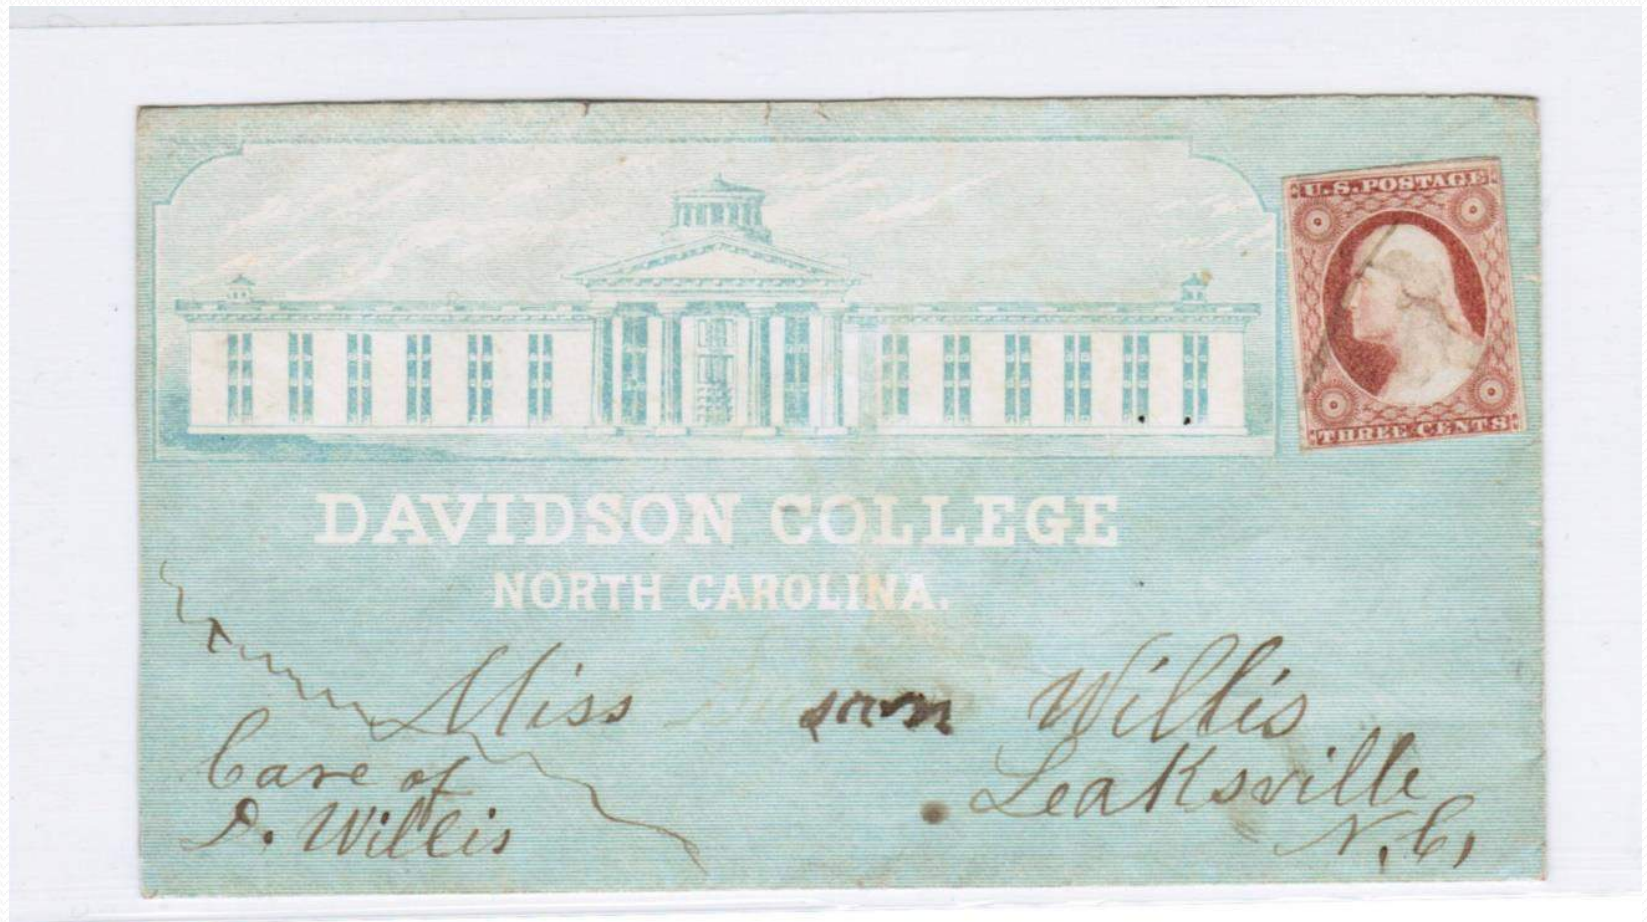 U.S. POSTAGE
THREE CENTS
DAVIDSON COLLEGE
NORTH CAROLINA.
Miss Willis
Care of
D. Willis
Leaksville
N.C.